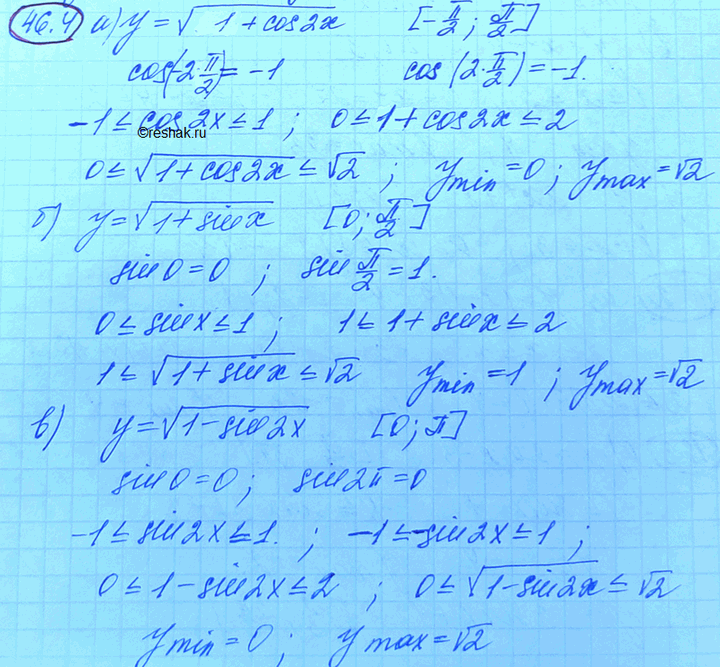 46.4 а) y = √(1+cos2x) [-π/2; π/2]
cos(-2·π/2) = -1 cos(2·π/2) = -1.
-1 ≤ cos2x ≤ 1 ; 0 ≤ 1+cos2x ≤ 2
©reshak.ru
0 ≤ √(1+cos2x) ≤ √2 ; y min = 0 ; y max = √2
б) y = √(1+sinx) [0; π/2]
sin0 = 0 ; sin π/2 = 1.
0 ≤ sinx ≤ 1 ; 1 ≤ 1+sinx ≤ 2
1 ≤ √(1+sinx) ≤ √2 y min = 1 ; y max = √2
в) y = √(1-sin2x) [0; π]
sin0 = 0 ; sin2π = 0
-1 ≤ sin2x ≤ 1. ; -1 ≤ -sin2x ≤ 1 ;
0 ≤ 1-sin2x ≤ 2 ; 0 ≤ √(1-sin2x) ≤ √2
y min = 0 ; y max = √2